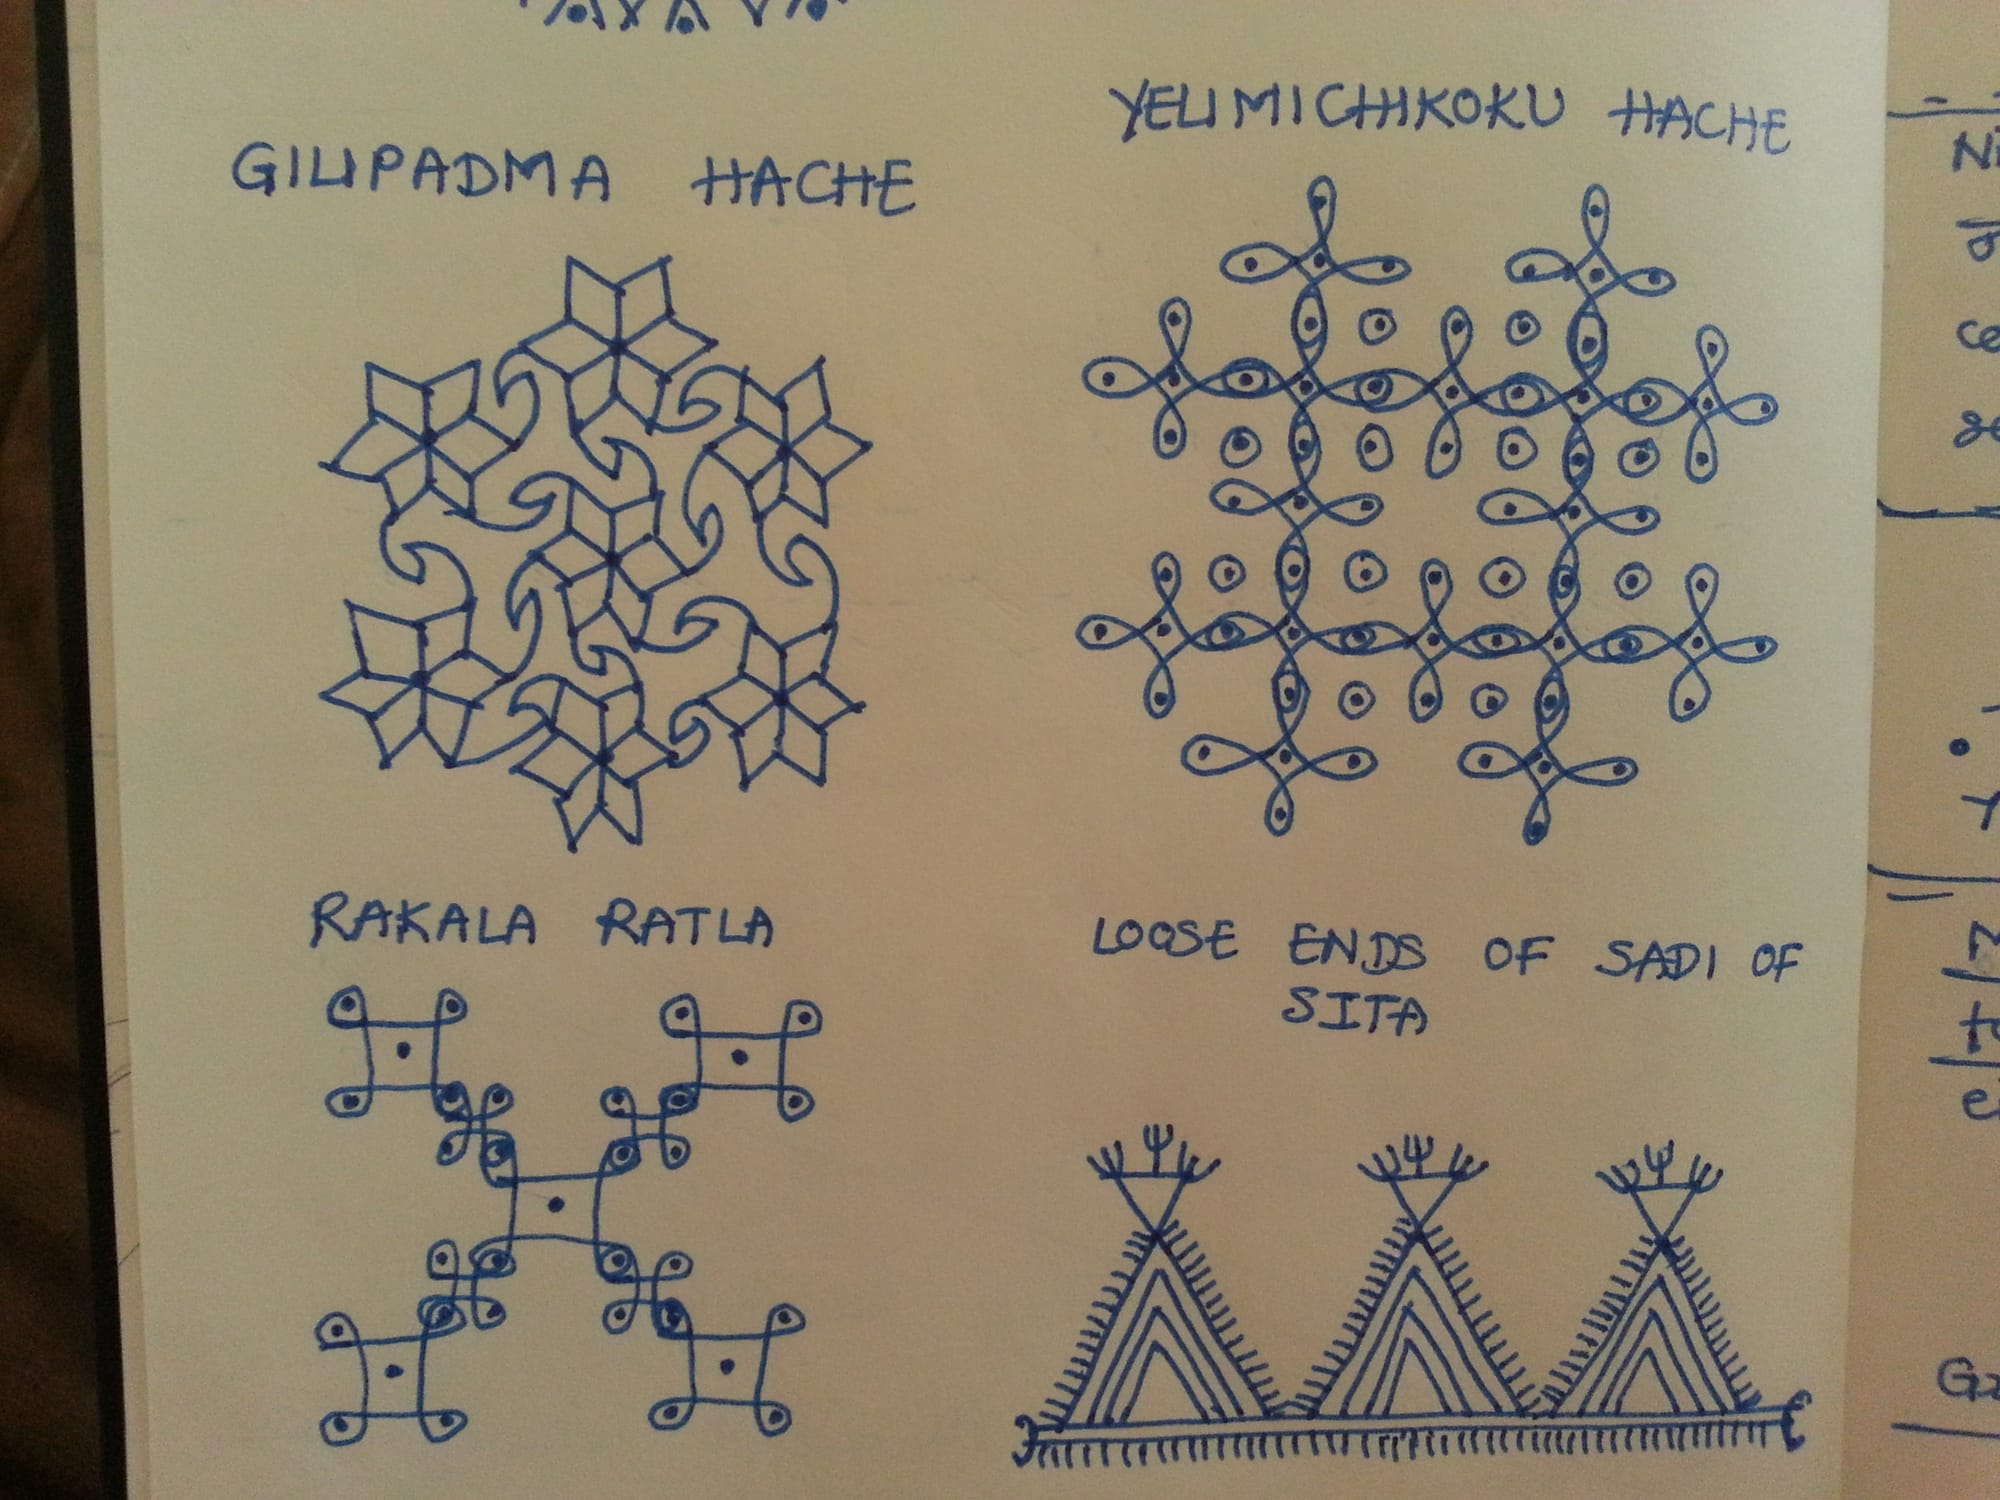 YELIMICHIKOKU HACHE
GILIPADMA HACHE
RAKALA RATLA
LOOSE ENDS OF SADI OF
SITA